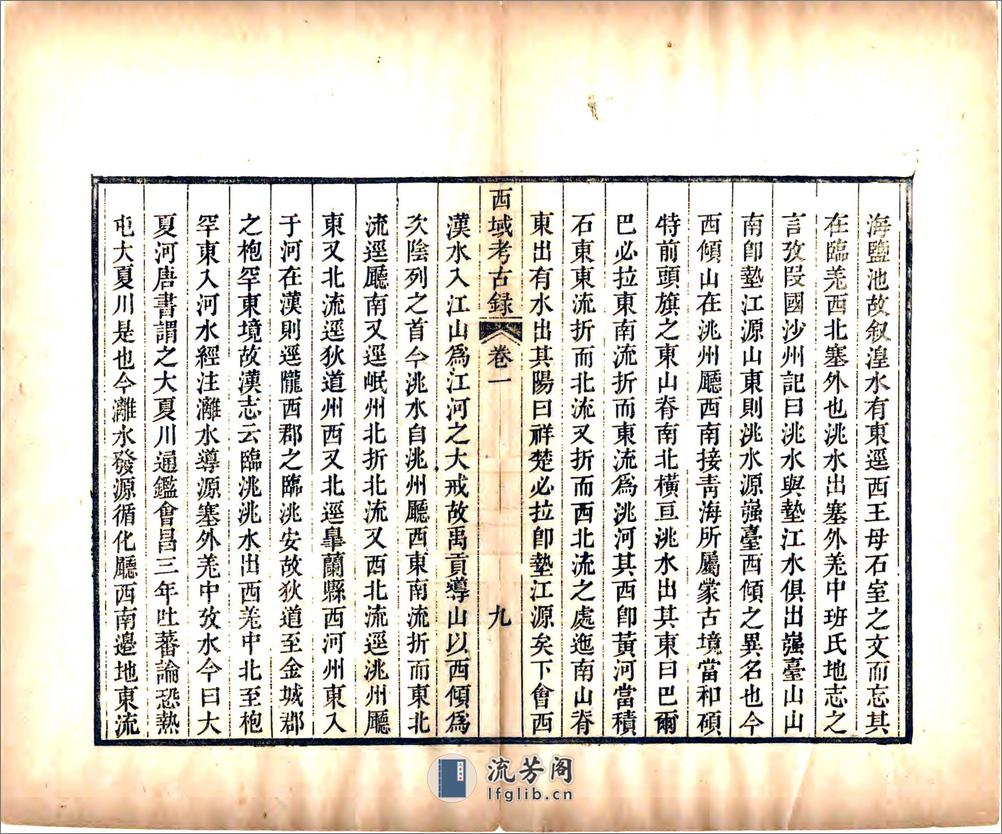 海鹽池故敘湟水有東逕西王母石室之文而忘其
在臨羌西北塞外也洮水出塞外羌中班氏地志之
言攷段國沙州記曰洮水與墊江水俱出嵹臺山山
南卽墊江源山東則洮水源嵹臺西傾之異名也今
西傾山在洮州廳西南接靑海所屬蒙古境當和碩
特前頭旗之東山脊南北橫亘洮水出其東曰巴爾
巴必拉東南流折而東流爲洮河其西卽黃河當積
石東東流折而北流又折而西北流之處迤南山脊
東出有水出其陽曰祥楚必拉卽墊江源矣下會西
西域考古錄
卷一
九
漢水入江山爲江河之大戒故禹貢導山以西傾爲
次陰列之首今洮水自洮州廳西東南流折而東北
流逕廳南又逕岷州北折北流又西北流逕洮州廳
東又北流逕狄道州西又北逕皐蘭縣西河州東入
于河在漢則逕隴西郡之臨洮安故狄道至金城郡
之枹罕東境故漢志云臨洮洮水出西羌中北至枹
罕東入河水經注灕水導源塞外羌中攷水今曰大
夏河唐書謂之大夏川通鑑會昌三年吐蕃論恐熱
屯大夏川是也今灕水發源循化廳西南邊地東流
流芳阁
lfglib.cn